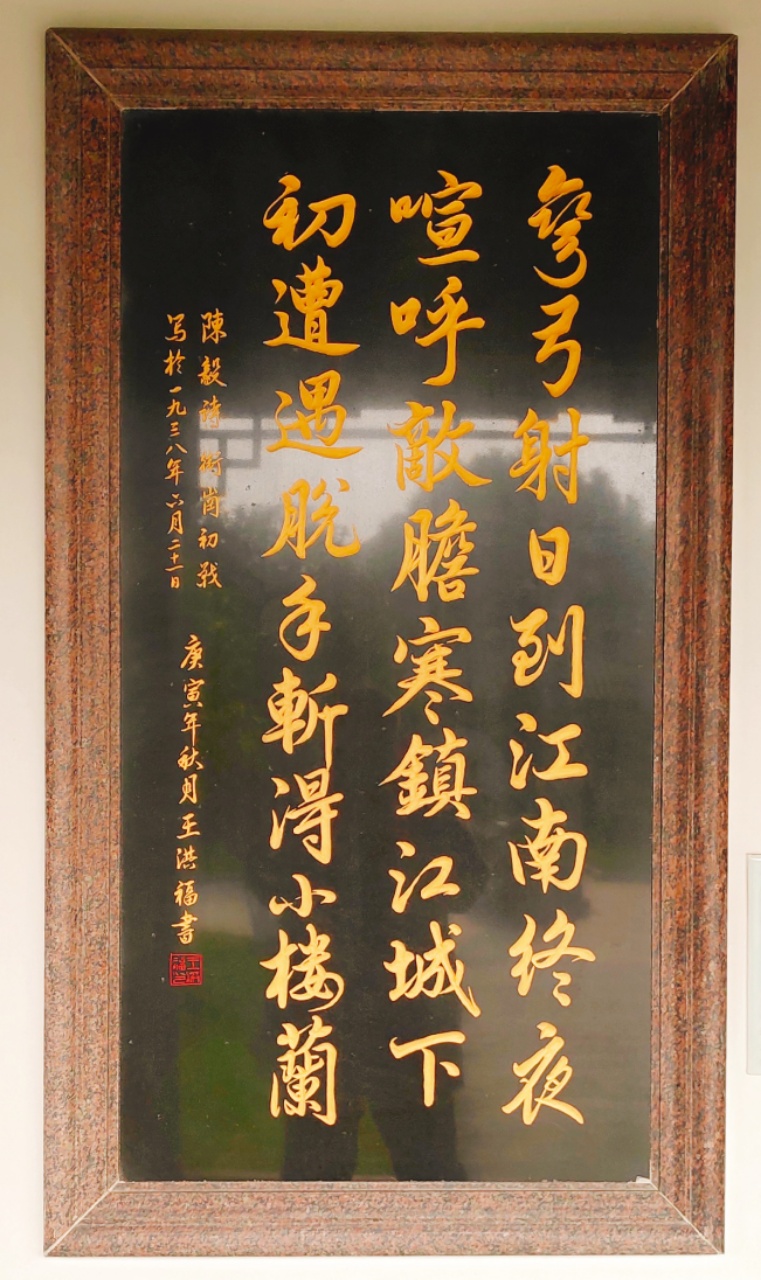 彎弓射日到江南終夜
喧呼敵膽寒鎮江城下
初遭遇脫手斬得小楼蘭
陳毅詩衛崗初戰
写於一九三八年六月二十一日
庚寅年秋月王洪福書